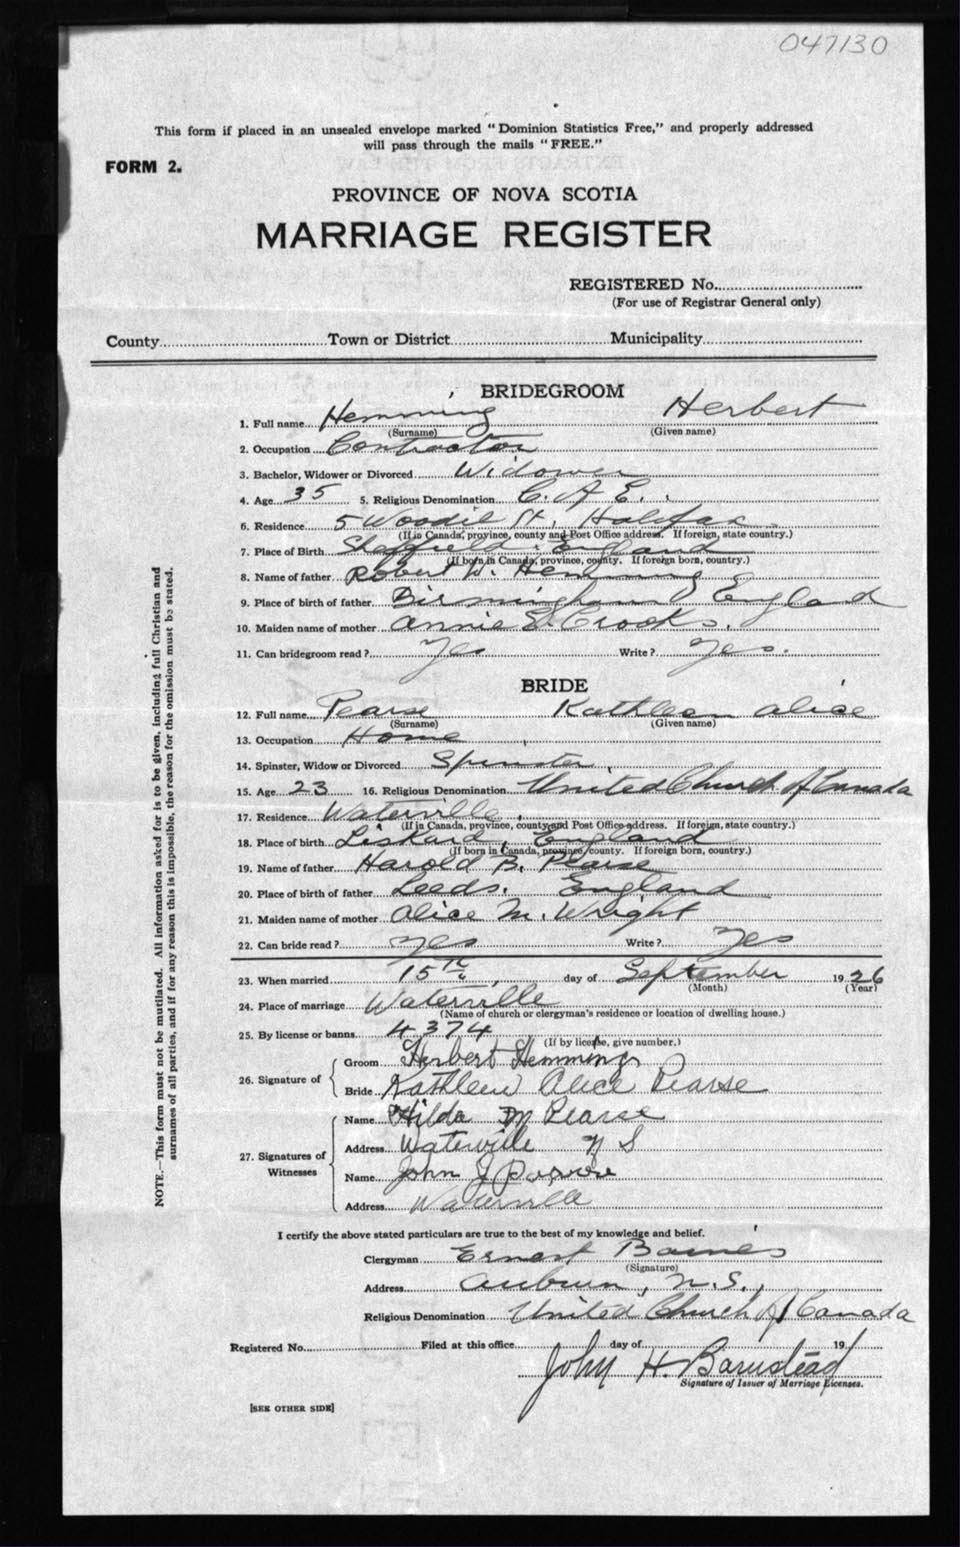 047130
This form if placed in an unsealed envelope marked "Dominion Statistics Free," and properly addressed
will pass through the mails "FREE."
FORM 2.
PROVINCE OF NOVA SCOTIA
MARRIAGE REGISTER
REGISTERED No.
(For use of Registrar General only)
County Town or District Municipality
BRIDEGROOM
1. Full name Hemming Herbert
(Surname) (Given name)
2. Occupation Contractor
3. Bachelor, Widower or Divorced Widower
4. Age 35 5. Religious Denomination C. of E.
6. Residence 5 Woodil St. Halifax
(If in Canada, province, county and Post Office address. If foreign, state country.)
7. Place of Birth Sheffield. England
(If born in Canada, province, county. If foreign born, country.)
8. Name of father Robert W. Hemming
9. Place of birth of father Birmingham England
10. Maiden name of mother Annie E. Crooks.
11. Can bridegroom read? Yes Write? Yes.
BRIDE
12. Full name Pearse Kathleen Alice
(Surname) (Given name)
13. Occupation Home
14. Spinster, Widow or Divorced Spinster.
15. Age 23 16. Religious Denomination United Church of Canada
17. Residence Waterville.
(If in Canada, province, county and Post Office address. If foreign, state country.)
18. Place of birth Liskard, England
(If born in Canada, province/county. If foreign born, country.)
19. Name of father Harold B. Pearse
20. Place of birth of father Leeds. England
21. Maiden name of mother Alice M. Wright
22. Can bride read? Yes Write? Yes
23. When married 15th day of September 1926
(Month) (Year)
24. Place of marriage Waterville
(Name of church or clergyman's residence or location of dwelling house.)
25. By license or banns 4374
(If by license, give number.)
26. Signature of Groom Herbert Hemming
Bride Kathleen Alice Pearse
27. Signatures of Witnesses Name Hilda M Pearse
Address Waterville N S
Name John J
Address Waterville
NOTE.—This form must not be mutilated. All information asked for is to be given, including full Christian and
surnames of all parties, and if for any reason this is impossible, the reason for the omission must be stated.
I certify the above stated particulars are true to the best of my knowledge and belief.
Clergyman Ernest Barnes
(Signature)
Address Auburn, N.S.,
Religious Denomination United Church of Canada
Registered No. Filed at this office day of 19
John H. Barnstead
Signature of Issuer of Marriage Licenses.
[SEE OTHER SIDE]